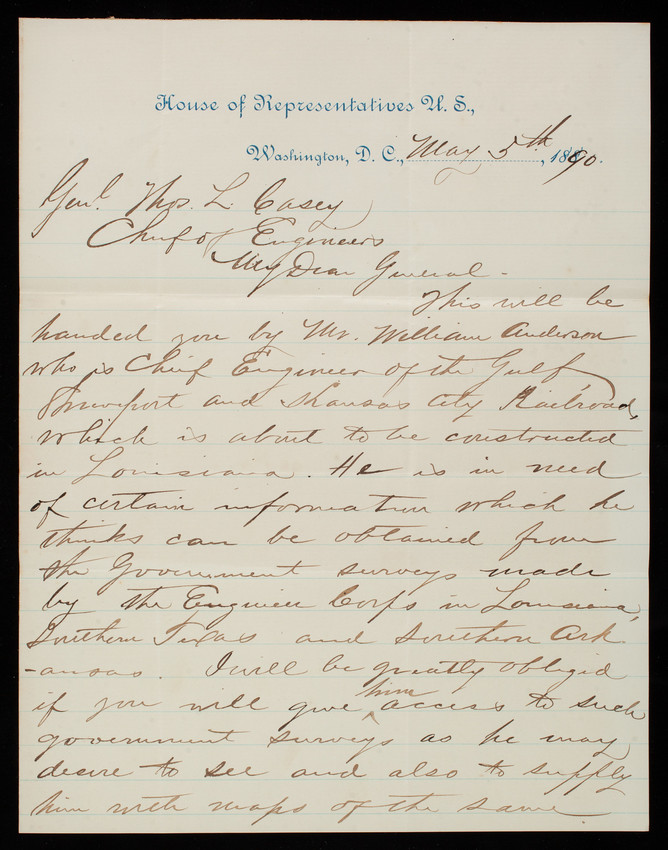 House of Representatives U. S.,
Washington, D. C., May 5th, 1890.
Genl. Thos. L. Casey
Chief of Engineers
My Dear General -
This will be
handed you by Mr. William Anderson
who is Chief Engineer of the Gulf
Shreveport and Kansas City Railroad,
which is about to be constructed
in Louisiana. He is in need
of certain information which he
thinks can be obtained from
the Government surveys made
by the Engineer Corps in Louisiana,
Southern Texas and Southern Ark
-ansas. I will be greatly obliged
if you will give him access to such
government surveys as he may
desire to see and also to supply
him with maps of the same